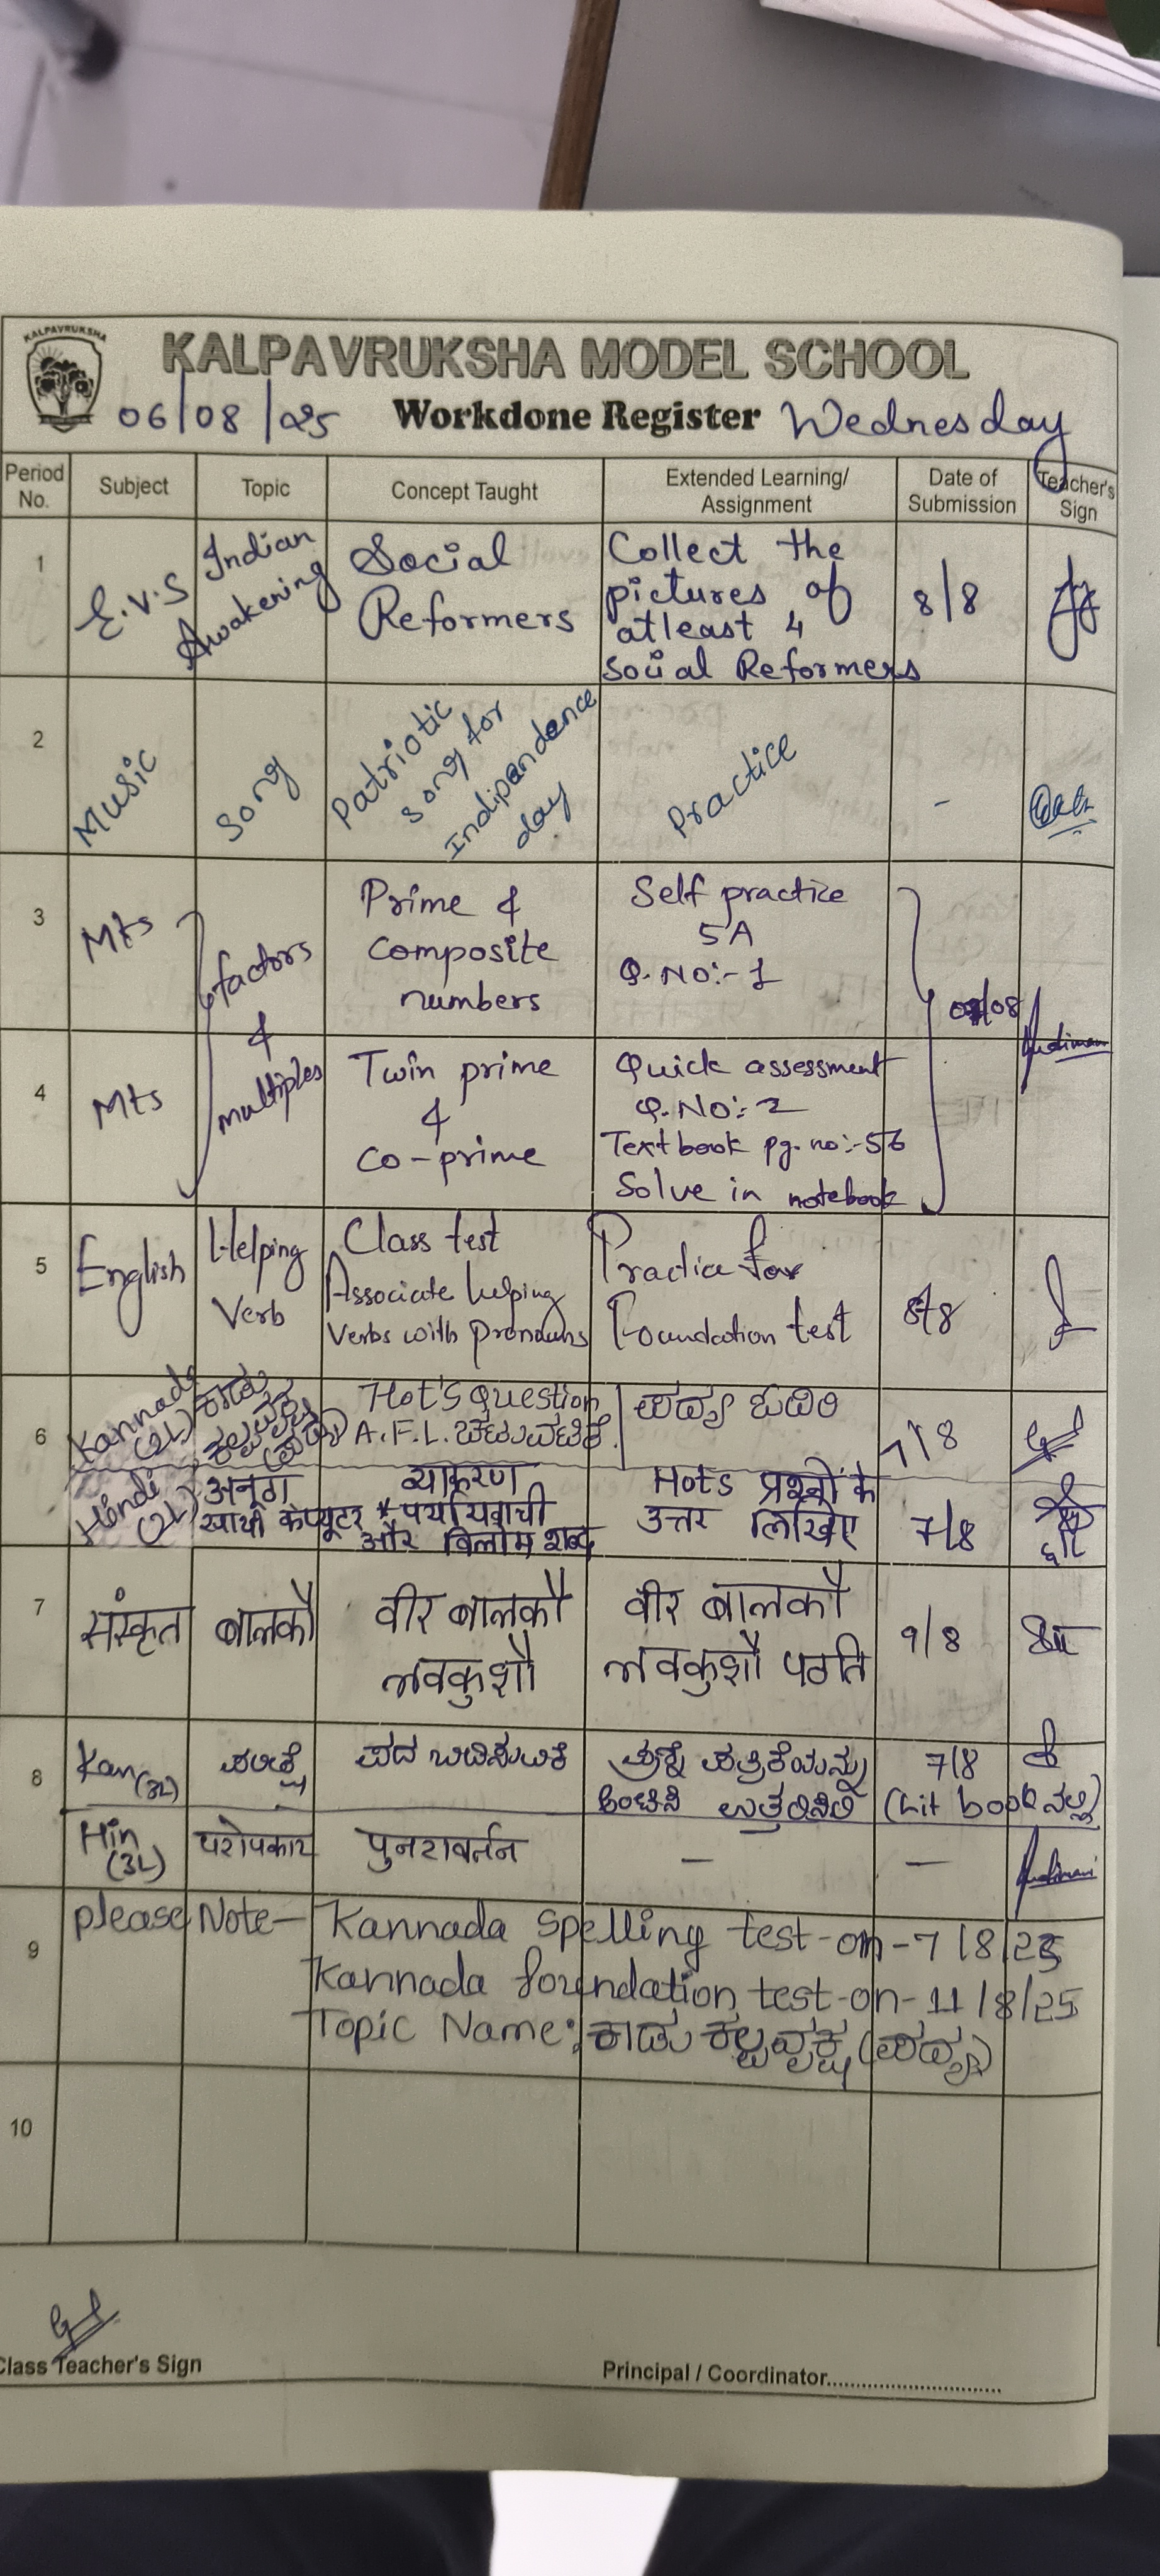 KALPAVRUKSHA
KALPAVRUKSHA MODEL SCHOOL
06/08/25 Workdone Register Wednesday
Period No. Subject Topic Concept Taught Extended Learning/ Assignment Date of Submission Teacher's Sign
1 E.V.S Indian Awakening Social Reformers Collect the pictures of atleast 4 Social Reformers 8/8
2 Music Song Patriotic song for Indipendence day Practice -
3 Mts factors & multiples Prime & Composite numbers Self practice 5A Q.No:-1
4 Mts Twin prime & co-prime Quick assessment Q.No:-2 Textbook pg.no:-56 Solve in notebook
5 English Helping Verb Class test Associate helping Verbs with pronouns Practice for Foundation test 8/8
6 Kannada (2L) ಕಾಡು ಕಲ್ಪವೃಕ್ಷ (ಪದ್ಯ) Hot's question A.F.L. ಚಟುವಟಿಕೆ. ಪದ್ಯ ಓದಿರಿ 7/8
Hindi (2L) अनूठा साथी कंप्यूटर व्याकरण * पर्यायवाची और विलोम शब्द Hots प्रश्नों के उत्तर लिखिए 7/8
7 संस्कृत बालकौ वीर बालकौ लवकुशौ वीर बालकौ लवकुशौ पठति 9/8
8 Kan (3L) ಪದ ಪ್ರಶ್ನೆ ಪತ್ರಿಕೆಯನ್ನು ಅಂಟಿಸಿ ಉತ್ತರಿಸಿರಿ 7/8 (Lit book ನಲ್ಲಿ)
Hin (3L) परोपकार पुनरावर्तन - -
9 please Note- Kannada spelling test-on-7/8/25
Kannada foundation test-on-11/8/25
Topic Name: ಕಾಡು ಕಲ್ಪವೃಕ್ಷ (ಪದ್ಯ)
10
Class Teacher's Sign
Principal / Coordinator..............................